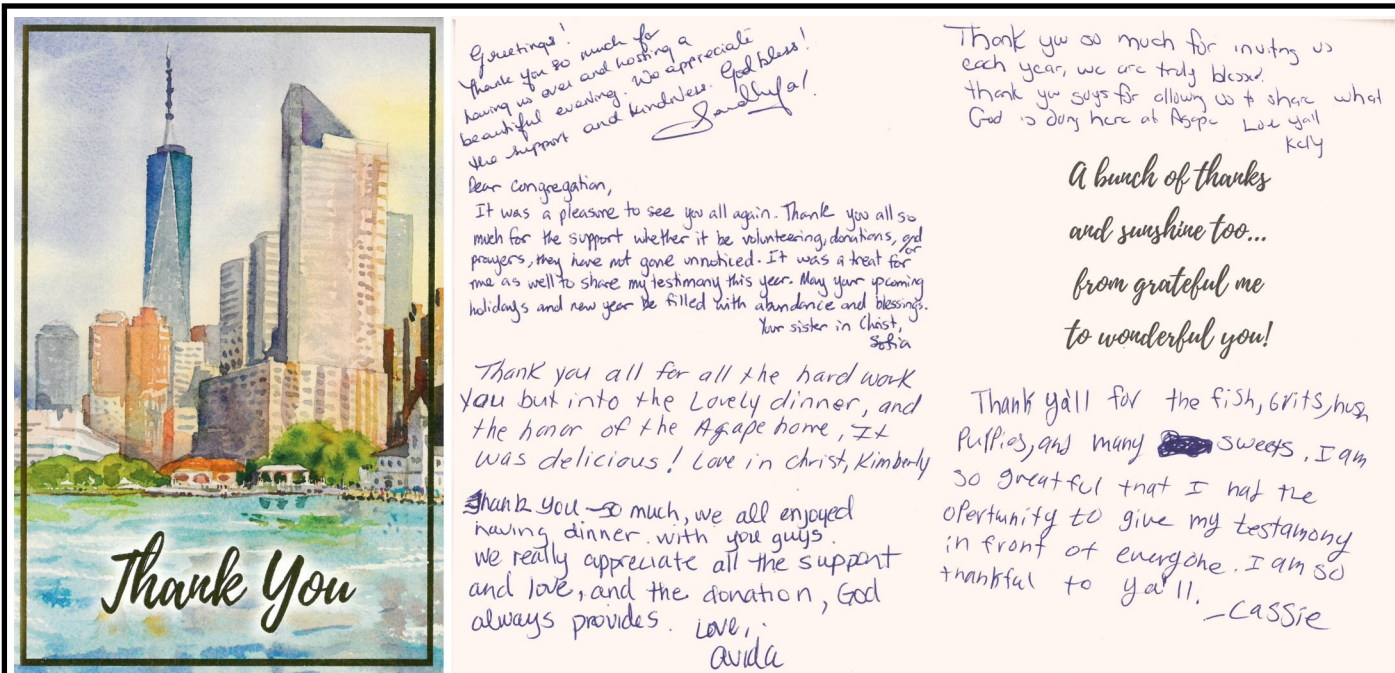 Thank You
Greetings!
Thank you so much for
having us over and hosting a
beautiful evening. We appreciate
the support and kindness. God bless!
Dear Congregation,
It was a pleasure to see you all again. Thank you all so
much for the support whether it be volunteering, donations, and/or
prayers, they have not gone unnoticed. It was a treat for
me as well to share my testimony this year. May your upcoming
holidays and new year be filled with abundance and blessings.
Your sister in Christ,
Sofia
Thank you all for all the hard work
You but into the Lovely dinner, and
the honor of the Agape home, It
was delicious! Love in christ, Kimberly
Thank you so much, we all enjoyed
having dinner with you guys.
we really appreciate all the support
and love, and the donation, God
always provides. Love,
avida
Thank you so much for inviting us
each year, we are truly blessed.
thank you guys for allowing us to share what
God is doing here at Agape Love yall
Kelly
A bunch of thanks
and sunshine too...
from grateful me
to wonderful you!
Thank ya'll for the fish, Grits, hush
Puppies, and many sweets. I am
so greatful that I had the
opertunity to give my testamony
in front of everyone. I am so
thankful to ya'll.
-Cassie